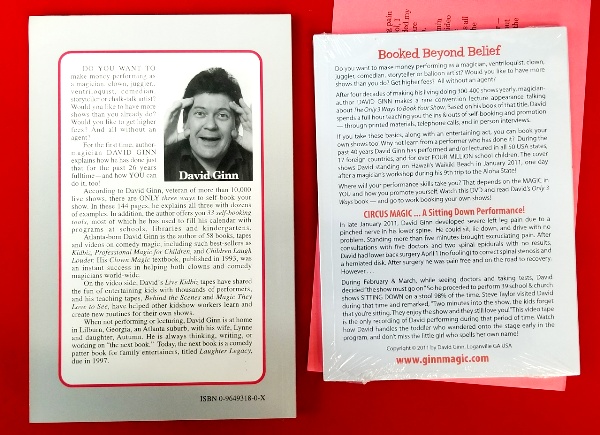 DO YOU WANT TO
make money performing as
a magician, clown, juggler,
ventriloquist, comedian,
storyteller or chalk-talk artist?
Would you like to have more
shows than you already do?
Would you like to get higher
fees? And all without an
agent?
For the first time, author-
magician DAVID GINN
explains how he has done just
that for the past 26 years
fulltime—and how YOU can
do it, too!
David Ginn
According to David Ginn, veteran of more than 10,000
live shows, there are ONLY three ways to self book your
show. In these 144 pages, he explains all three with dozens
of examples. In addition, the author offers you 33 self-booking
tools, most of which he has used to fill his calendar with
programs at schools, libraries and kindergartens.
Atlanta-born David Ginn is the author of 58 books, tapes
and videos on comedy magic, including such best-sellers as
Kidbiz, Professional Magic for Children, and Children Laugh
Louder. His Clown Magic textbook, published in 1993, was
an instant success in helping both clowns and comedy
magicians world-wide.
On the video side, David's Live Kidbiz tapes have shared
the fun of entertaining kids with thousands of performers,
and his teaching tapes, Behind the Scenes and Magic They
Love to See, have helped other kidshow workers learn and
create new routines for their own shows.
When not performing or lecturing, David Ginn is at home
in Lilburn, Georgia, an Atlanta suburb, with his wife, Lynne
and daughter, Autumn. He is always thinking, writing, or
working on "the next book." Today, the next book is a comedy
patter book for family entertainers, titled Laughter Legacy,
due in 1997.
ISBN 0-9649318-0-X
Booked Beyond Belief
Do you want to make money performing as a magician, ventriloquist, clown,
juggler, comedian, storyteller or balloon artist? Would you like to have more
shows than you do? Get higher fees? All without an agent?
After four decades of making his living doing 300-400 shows yearly, magician-
author DAVID GINN makes a rare convention lecture appearance, talking
about The Only 3 Ways to Book Your Show, based on his book of that title. David
spends a full hour teaching you the ins & outs of self-booking and promotion
— through printed materials, telephone calls, and in person interviews.
If you take these basics, along with an entertaining act, you can book your
own shows too. Why not learn from a performer who has done it? During the
past 40 years David has performed and/or lectured in all 50 USA states,
17 foreign countries, and for over FOUR MILLION school children. The cover
shows David standing on Hawaii's Waikiki Beach in January 2011, one day
after a magician's workshop during his 9th trip to the Aloha State!
Where will your performance skills take you? That depends on the MAGIC in
YOU and how you promote yourself. Watch this DVD and read David's Only 3
Ways book — and go to work booking your own shows!
CIRCUS MAGIC ... A Sitting Down Performance!
In late January 2011, David Ginn developed severe left leg pain due to a
pinched nerve in his lower spine. He could sit, lie down, and drive with no
problem. Standing more than five minutes brought excruciating pain. After
consultations with five doctors and two spinal epidurals with no results,
David had lower back surgery April 1 (no fooling) to correct spinal stenosis and
a herniated disk. After surgery he was pain free and on the road to recovery.
However . . .
During February & March, while seeing doctors and taking tests, David
decided "the show must go on!" So he proceeded to perform 39 school & church
shows SITTING DOWN on a stool 98% of the time. Steve Taylor visited David
during that time and remarked, "Two minutes into the show, the kids forget
that you're sitting. They enjoy the show and they still love you!" This video tape
is the only recording of David performing during that period of time. Watch
how David handles the toddler who wandered onto the stage early in the
program, and don't miss the little girl who spells her own name!
Copyright © 2011 by David Ginn, Loganville GA USA
www.ginnmagic.com